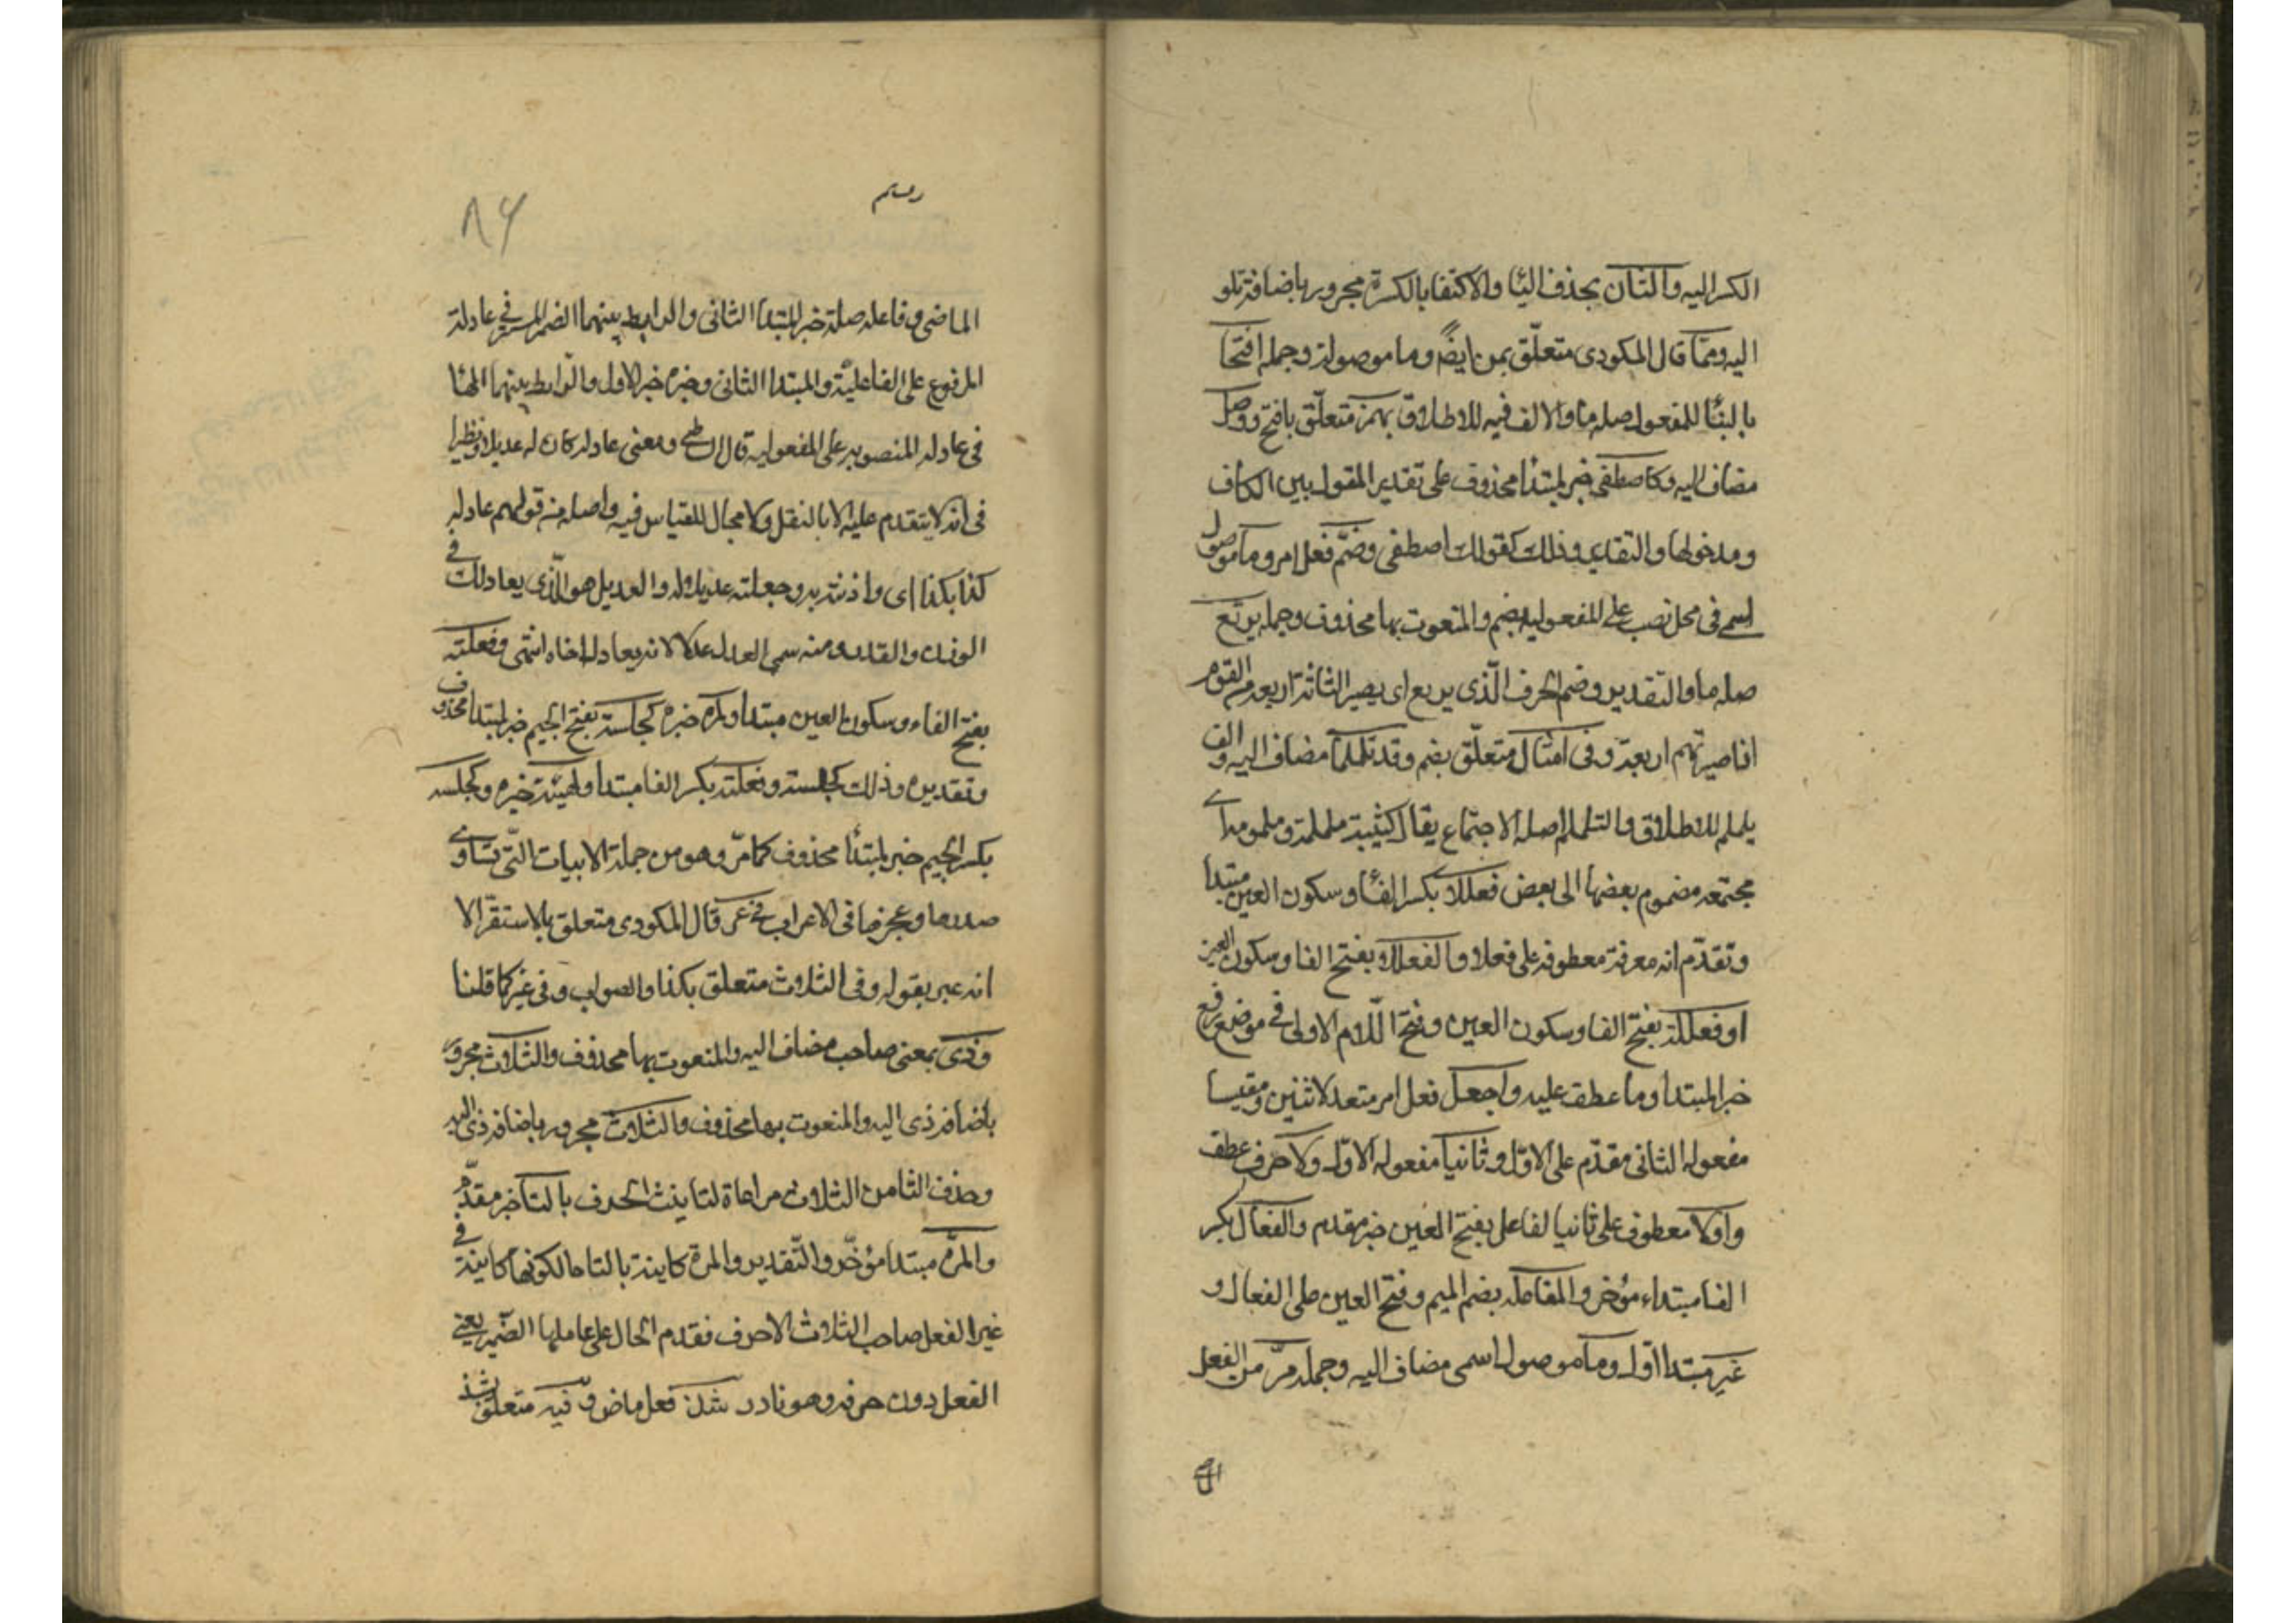 الكسر اليه والتان بحذف اليا والاكتفا بالكسرة مجرور باضافة تلو
اليه ومما قال المكودى متعلّق بمن ايضً وما موصولة وجملة افتتحا
بالبنا للمفعول صله ما والالف فيه للاطلاق بهمز متعلّق بافتح ووصل
مضاف اليه وكاصطفى خبر لمبتدا محذوف على تقدير المقول بين الكاف
ومدخولها والتقدير وذلك كقولك اصطفى وضمّ فعل امر وما موصول
اسمى فى محل نصب على المفعوليه بضم والمنعوت بها محذوف وجملة يربع
صله ما والتقدير وضم الحرف الّذى يربع اى يصير الثلاثة اربعة من القوم
اذا صيرتهم اربعة وفى امثال متعلّق بضم وقد تلملما مضاف اليه والف
يلملم للاطلاق والتلملم اصله الاجتماع يقال كثيبة ململمة وملمومة اى
مجتمعه مضموم بعضها الى بعض فعلال بكسر الفا وسكون العين مبتدا
وتقدّم انه معرفة معطوفه على فعلا والفعلال بفتح الفا وسكون العين
او فعللة بفتح الفا وسكون العين وفتح اللّام الاولى فى موضع رفع
خبر المبتدا وما عطف عليه واجعل فعل امر متعد لاثنين ومقيسا
مفعوله الثانى مقدّم على الاوّل وثانيا مفعوله الاوّل ولا حرف عطف
واوّلا معطوف على ثانيا لفاعل بفتح العين خبر مقدم والفعال بكسر
الفا مبتداء مؤخر والمفاعله بضم الميم وفتح العين على الفعال و
غير مبتدا اوّل وما موصول اسمى مضاف اليه وجملة مرّ من الفعل
٨٦
الماضى وفاعله صلة خبر المبتدا الثانى والرابط بينهما الضمير المستتر فى عادلة
المرفوع على الفاعليّة والمبتدا الثانى وخبره خبر الاول والرّابط بينهما الها
فى عادله المنصوبه على المفعوليه قال الشاطبى ومعنى عادله كان له عديلا ونظيرا
فى انه لا يتقدم عليه الا بالنقل ولا مجال للقياس فيه واصله من قولهم عادله
كذا بكذا اى وازنته به وجعلته عديلا له والعديل هو الّذى يعادلك فى
الوزن والقدر ومنه سمى العدل عدلا لانه يعادل اخاه انتهى وفعلته
بفتح الفاء وسكون العين مبتدا ولمرة خبره كجلسة بفتح الجيم خبر لمبتدا محذوف
وتقديره وذلك كجلسة وفعلته بكسر الفا مبتدا ولهيئة خبره وكجلسه
بكسر الجيم خبر لمبتدا محذوف كما مرّ وهو من جملة الابيات التّى تساوى
صدرها وعجزها فى الاعراب فى غير قال المكودى متعلق بالاستقرّ الا
انه عبر بقوله وفى الثلاث متعلق بكذا والصواب وفى غير كما قلنا
وذى بمعنى صاحب مضاف اليه والمنعوت بها محذوف والثلاث مجرور
باضافة ذى اليه والمنعوت بها محذوف والثلاث مجرور باضافة ذى اليه
وحذف التا من الثلاث مراعاة لتانيث الحرف بالتا خبر مقدّم
والمرّة مبتدا مؤخّر والتّقدير والمرة كاينة بالتا حالكونها كاينة فى
غير الفعل صاحب الثلاث الاحرف فقدم الحال على عاملها الضّمير يعنى
الفعل دون حرفه وهو نادر شذ فعل ماض وفيه متعلّق بشذ